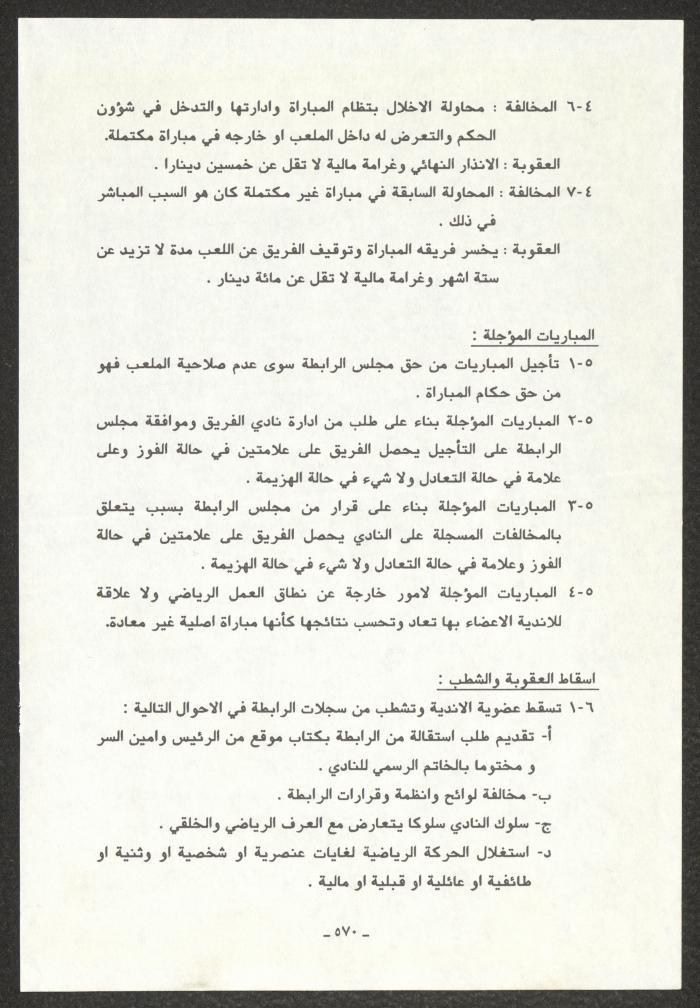 ٤-٦ المخالفة : محاولة الاخلال بنظام المباراة وادارتها والتدخل في شؤون
الحكم والتعرض له داخل الملعب او خارجه في مباراة مكتملة.
العقوبة : الانذار النهائي وغرامة مالية لا تقل عن خمسين دينارا .
٤-٧ المخالفة : المحاولة السابقة في مباراة غير مكتملة كان هو السبب المباشر
في ذلك .
العقوبة : يخسر فريقه المباراة وتوقيف الفريق عن اللعب مدة لا تزيد عن
ستة اشهر وغرامة مالية لا تقل عن مائة دينار .
المباريات المؤجلة :
٥-١ تأجيل المباريات من حق مجلس الرابطة سوى عدم صلاحية الملعب فهو
من حق حكام المباراة .
٥-٢ المباريات المؤجلة بناء على طلب من ادارة نادي الفريق وموافقة مجلس
الرابطة على التأجيل يحصل الفريق على علامتين في حالة الفوز وعلى
علامة في حالة التعادل ولا شيء في حالة الهزيمة .
٥-٣ المباريات المؤجلة بناء على قرار من مجلس الرابطة بسبب يتعلق
بالمخالفات المسجلة على النادي يحصل الفريق على علامتين في حالة
الفوز وعلامة في حالة التعادل ولا شيء في حالة الهزيمة .
٥-٤ المباريات المؤجلة لامور خارجة عن نطاق العمل الرياضي ولا علاقة
للاندية الاعضاء بها تعاد وتحسب نتائجها كأنها مباراة اصلية غير معادة.
اسقاط العقوبة والشطب :
٦-١ تسقط عضوية الاندية وتشطب من سجلات الرابطة في الاحوال التالية :
أ- تقديم طلب استقالة من الرابطة بكتاب موقع من الرئيس وامين السر
و مختوما بالخاتم الرسمي للنادي .
ب- مخالفة لوائح وانظمة وقرارات الرابطة .
ج- سلوك النادي سلوكا يتعارض مع العرف الرياضي والخلقي .
د- استغلال الحركة الرياضية لغايات عنصرية او شخصية او وثنية او
طائفية او عائلية او قبلية او مالية .
ـ ٥٧٠ ـ